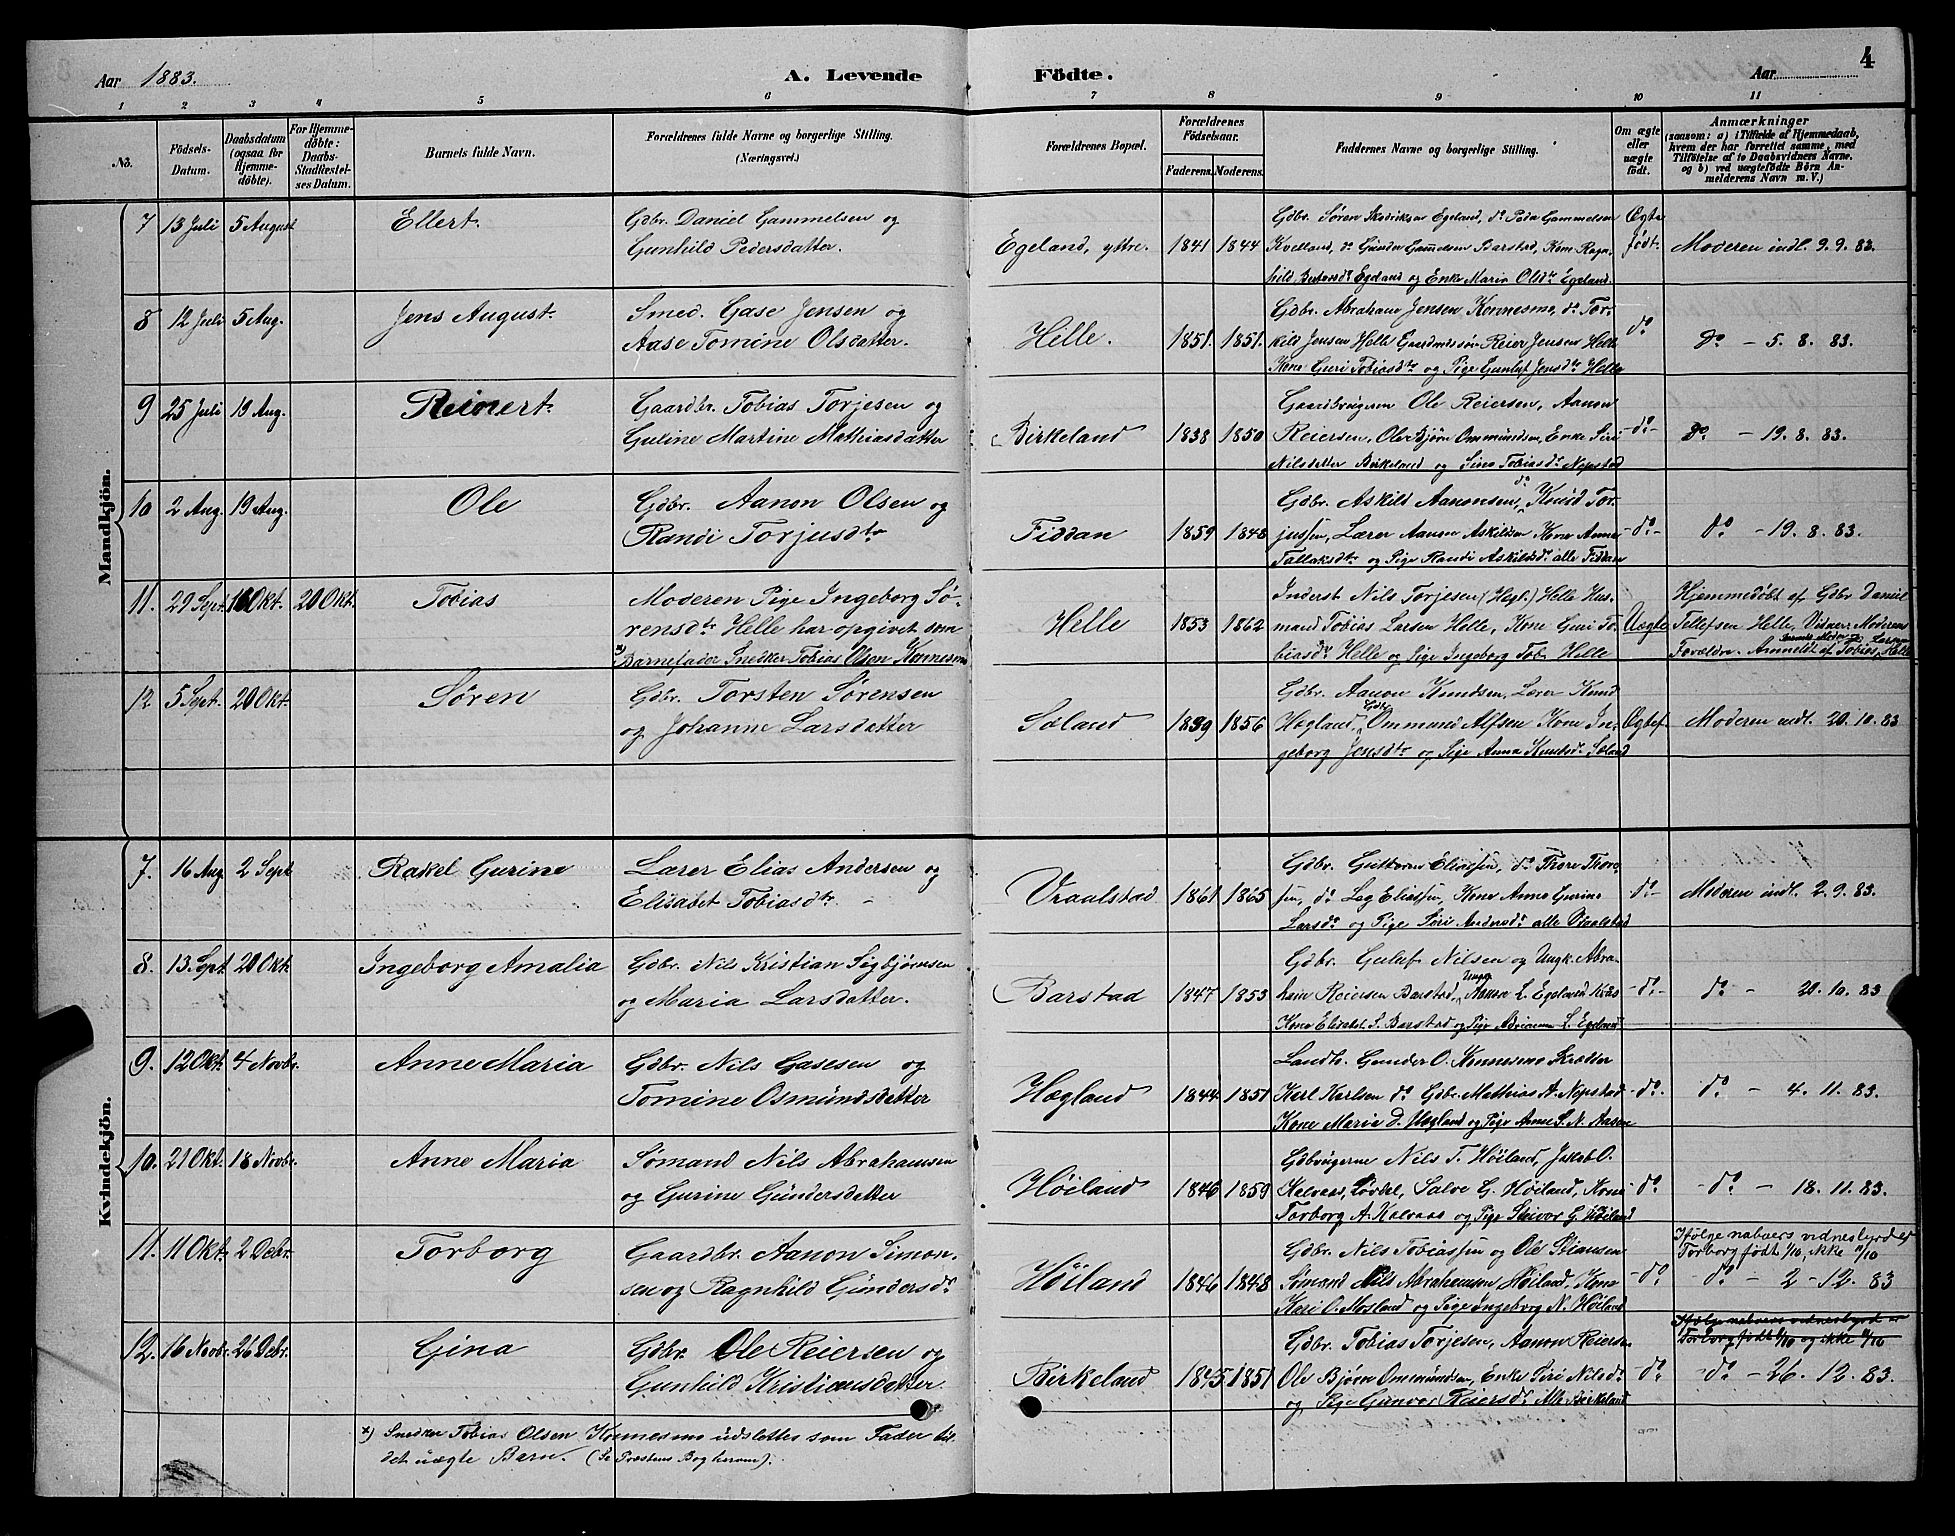 4
Aar 1883.
A. Levende Födte.
Aar
1 2 3 4 5 6 7 8 9 10 11
No.
Födsels-Datum.
Daabsdatum (ogsaa for Hjemme-døbte).
For Hjemme-døbte: Daabs-Stadfæstel-ses Datum.
Barnets fulde Navn.
Forældrenes fulde Navne og borgerlige Stilling. (Næringsvei.)
Forældrenes Bopæl.
Forældrenes Fødselsaar.
Faderens. Moderens.
Faddernes Navne og borgerlige Stilling.
Om ægte eller uægte født.
Anmærkninger
(saasom: a) i Tilfælde af Hjemmedaab, hvem der har forrettet samme, med Tilføielse af to Daabsvidners Navne, og b) ved uægtefødte Börn An-melderens Navn m. V.)
Mandkjön.
7 13 Juli 5 August Ellert. Gdbr. Daniel Gammelsen og
Gunhild Pedersdatter.
Egeland, yttre. 1841 1844
Gdbr. Søren Fredriksen Egeland, do Peder Gammelsen
Kvelland, do Gunder Gammelsen Barstad, Kone Ragn-
hild Egeland og Enke Maria Olsdtr Egeland.
Ægte født. Moderen indl. 9. 9. 83.
8 12 Juli 5 Aug. Jens August. Smed. Gase Jensen og
Aase Tomine Olsdatter.
Helle. 1851. 1851.
Gdbr. Abraham Jensen Konnesmo, do Tor-
kild Jensen Helle Gaardmandssøn Reier Jensen Helle
Kone Guri Tobiasdtr og Pige Gunluf Jensdtr Helle
do do - 5. 8. 83.
9 25 Juli 19 Aug. Reinert. Gaardbr. Tobias Torjesen og
Guline Martine Mathiasdatter
Birkeland 1838 1850
Gaardbrugerne Ole Reiersen, Aanon
Reiersen, Ole Bjørn Ommundsen, Enke Siri
Nilsdatter Birkeland og Sina Tobiasdr Nepstad
-do- do - 19. 8. 83.
10 2 Aug. 19 Aug. Ole Gdbr. Aanon Olsen og
Randi Torjusdtr
Fiddan 1859 1848
Gdbr. Askild Aanonsen, do Knud Tor-
jussen, Lærer Aanon Askildsen Kone Anne
Tallaksdtr og Pige Randi Askildsdr alle Fiddan
-do- do - 19. 8. 83.
11. 29 Sept. 16 Okt. 20 Okt. Tobias Moderen Pige Ingeborg Sø-
rensdtr Helle har opgivet som
x) Barnefader Snedker Tobias Olsen Konnesmo
Helle 1853 1862
Inderst Nils Torjesen (Hegl.) Helle Hus-
mand Tobias Larsen Helle, Kone Guri To-
biasdr Helle og Pige Ingeborg Tob. Helle
Uægte Hjemmedøbt af Gdbr Daniel
Tellefsen Helle, Vidner: Moderens
Forældre. Anmeldt af Tobias Larsen Helle
12 5 Sept. 20 Okt. Søren Gdbr. Torsten Sørensen
og Johanne Larsdatter
Søland 1839 1856
Gdbr. Aanon Knudsen, Lærer Knud
Hægland, Gdbr Ommund Alfsen Kone In-
geborg Jensdtr og Pige Anna Knutsdr Søland
Ægtef. Moderen indl. 20. 10. 83
Kvindekjön.
7. 16 Aug 2 Sept Rakel Gurine Lærer Elias Andersen og
Elisabet Tobiasdtr -
Vraalstad 1861 1865
Gdbr. Guttorm Eliassen, do Thore Thor-
sen, do Lag Eliassen, Kone Anne Gurine
Larsdr og Pige Siri Andersdr alle Vraalstad
do- Moderen indl. 2. 9. 83.
8. 13. Sept 20 Okt. Ingeborg Amalia Gdbr. Nils Kristian Sigbjørnsen
og Maria Larsdatter.
Barstad 1847 1853
Gdbr. Guluf Nilsen og Ungk. Abra-
ham Reiersen Barstad, Ungk. Aanon L. Egeland
Kone Elisabet S. Barstad og Pige Adriane L. Egeland
-do- do - 20. 10. 83
9. 12 Okt. 4 Novbr. Anne Maria Gdbr. Nils Gasesen og
Tomine Osmundsdatter
Hægland 1844 1851
Landh. Gunder O. Konnesmo Kræmer
Karl Karlsen do Gdbr. Mathias A. Nepstad
Kone Maria d. Hægland og Pige Anne S. N. Aasen
-do. do - 4. 11. 83.
10. 21 Okt. 18 Novbr. Anne Maria Sømand Nils Abrahamsen
og Gurine Gundersdatter
Høiland 1846 1859
Gdbrugerne Nils T. Høiland, Jakob O.
Kalvaas, Lovdal, Salve G. Høiland, Kone
Torborg A. Kalvaas og Pige Skivor G. Høiland
do. -do- - 18. 11. 83.
11. 11 Okt. 2 Debr. Torborg Gaardbr. Aanon Simon-
sen og Ragnhild Gundersdr
Høiland 1846 1848
Gdbr. Nils Tobiassen og Ole Stiansen
Sømand Nils Abrahamsen Høiland, Kone
Kari O. Mosland og Pige Ingeborg N. Høiland
-do. Ifølge naboers vidnesbyrd er
Torborg født 1/10, ikke 11/10
-do - 2 - 12. 83
12. 16 Novbr. 26 Debr. Gina Gdbr. Ole Reiersen og
Gunhild Kristiansdatter
Birkeland 1845 1851
Gdbr. Tobias Torjesen, Aanon Reiersen
Ole Bjørn Ommundsen, Enke Siri Nilsdr
og Pige Gunvor Reiersdr Alle Birkeland
do. Ifølge naboers vidnesbyrd er
Torborg født 1/10 og ikke 11/10
-do - 26. 12. 83.
x) Snedker Tobias Olsen Konnesmo udslettes som Fader til
det uægte Barn. (Se Præstens Bog herom).